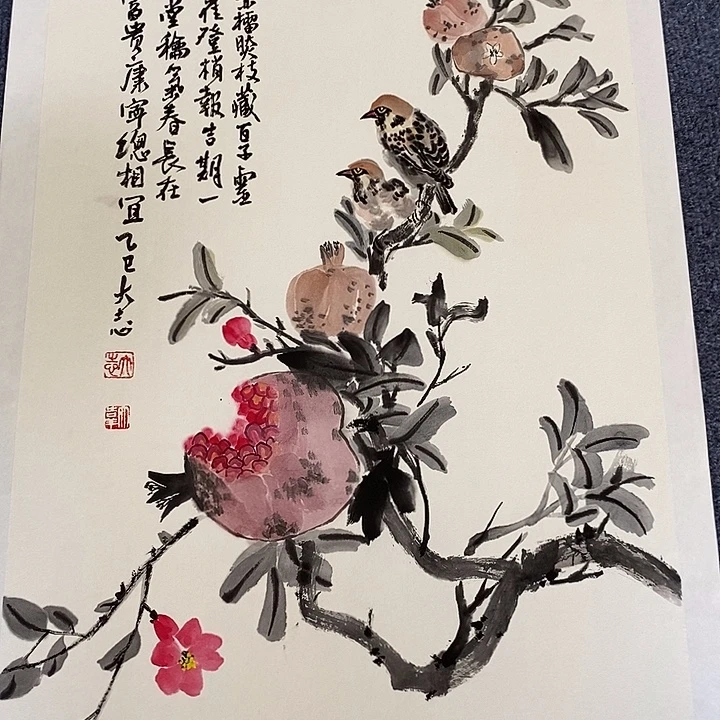 榴枝藏百子靈
雀登梢報吉期一
堂氣春長在
富貴康寧總相宜 乙巳大志
大志